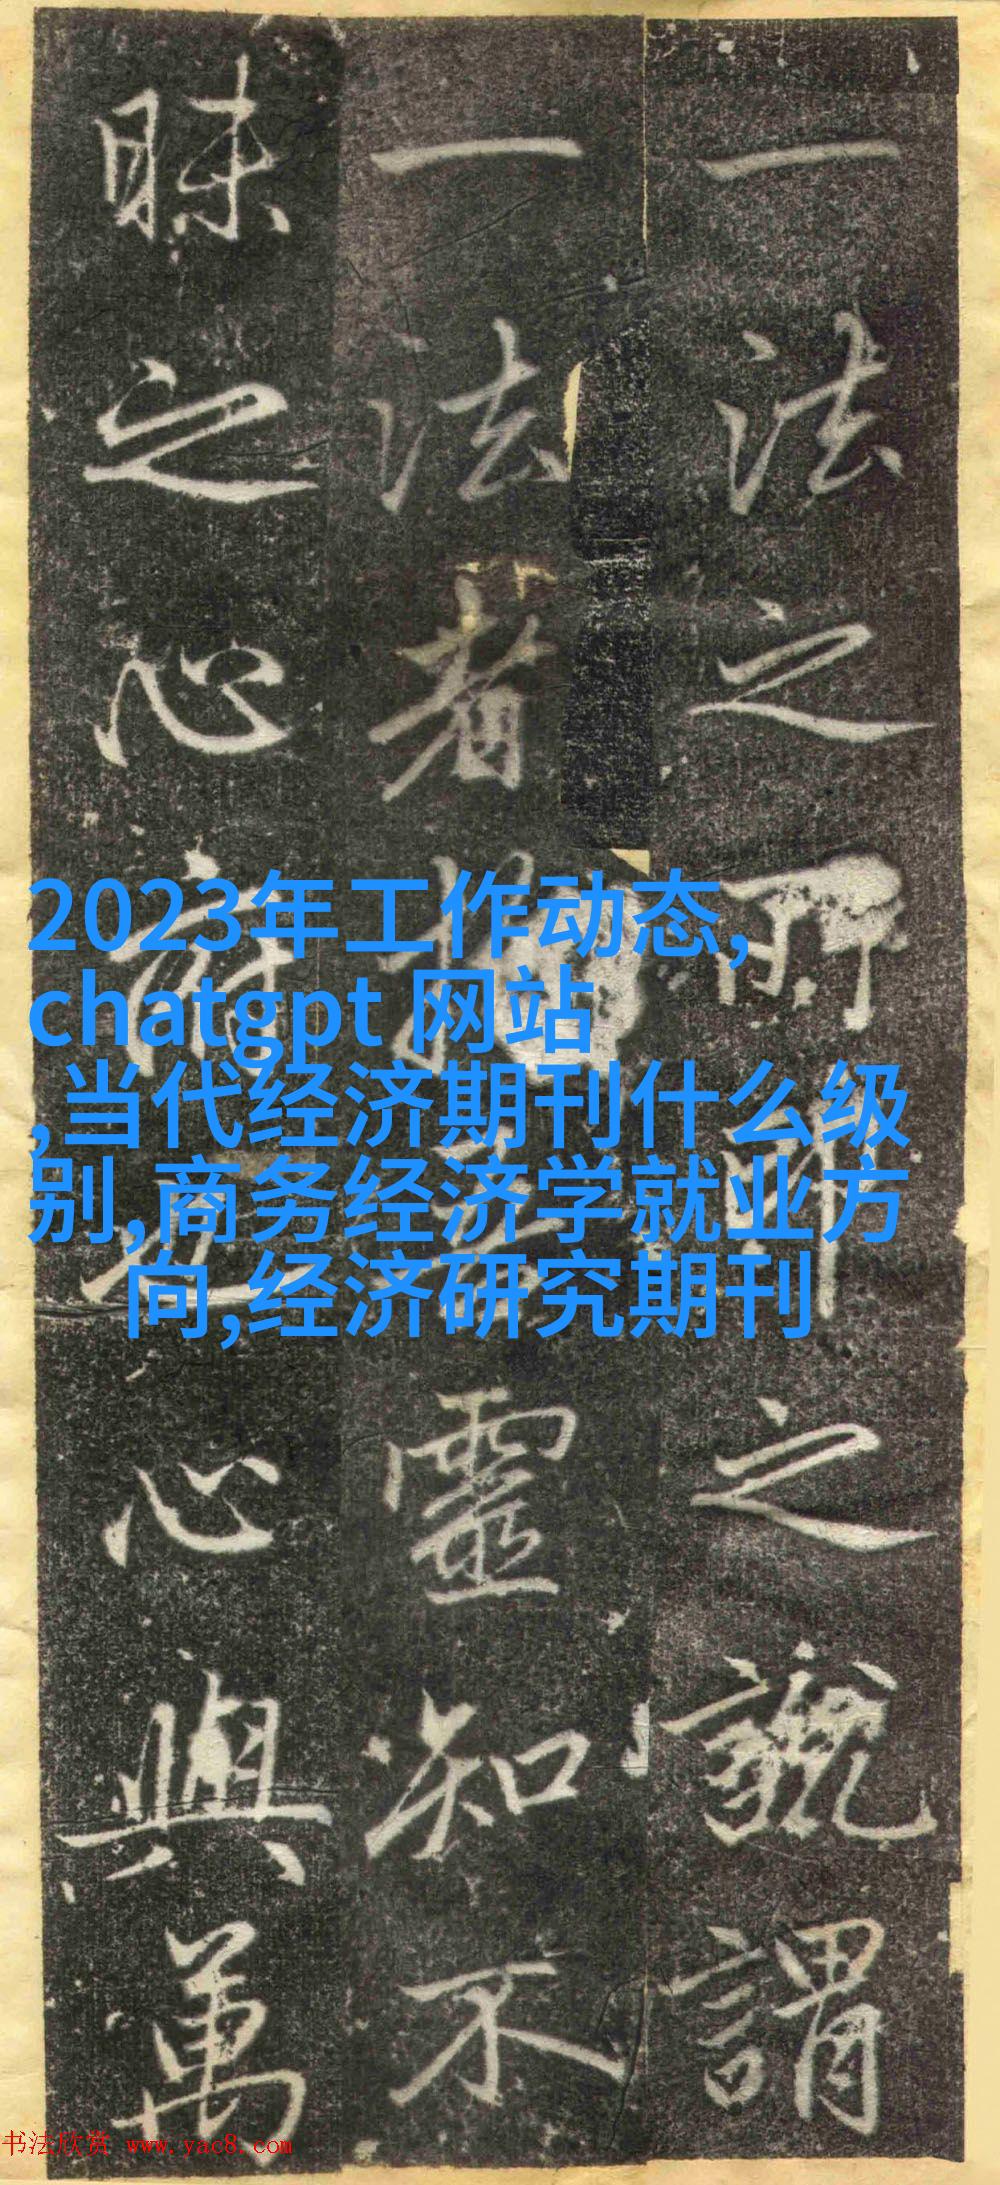 一法之所印之謂
一法者靈知不
昧之心也心與萬
2023年工作动态,
chatgpt 网站
,当代经济期刊什么级
别,商务经济学就业方
向,经济研究期刊
书法欣赏 www.yac8.com